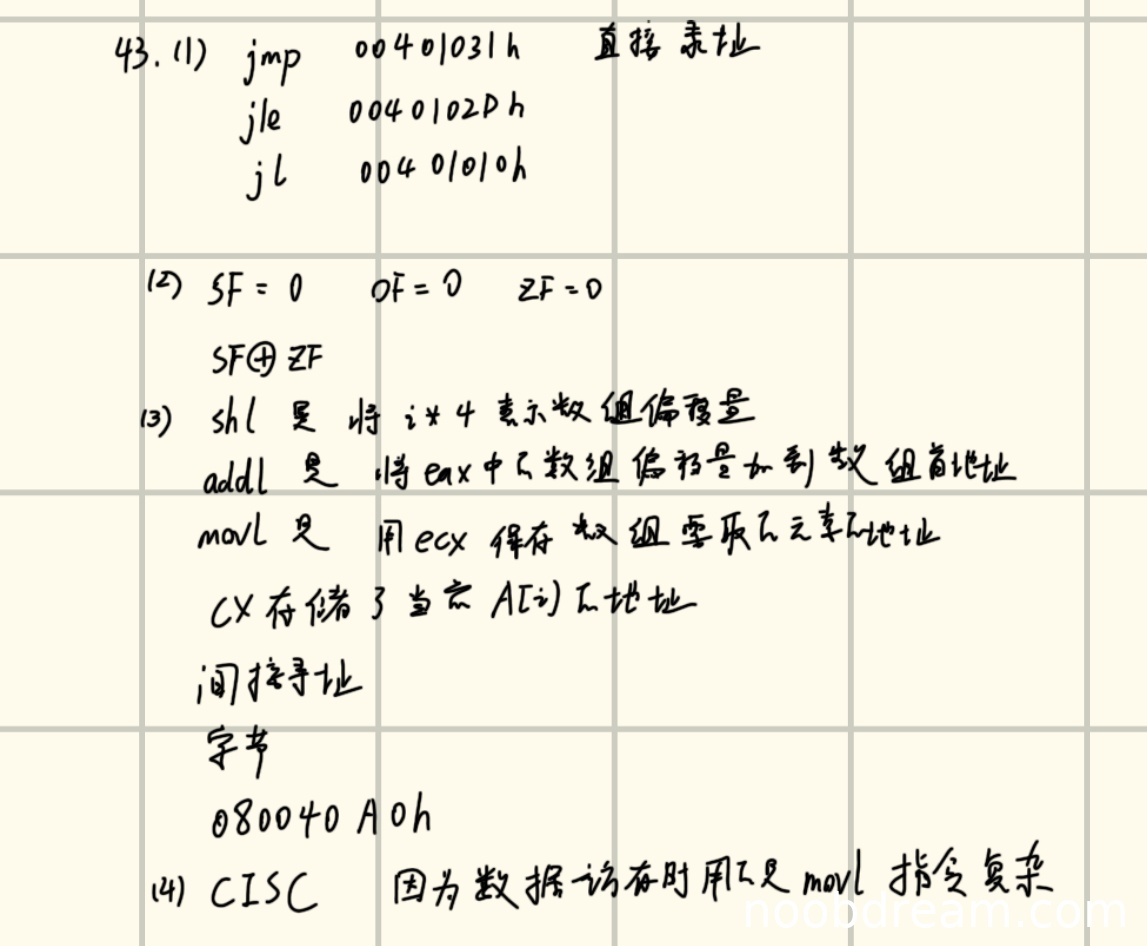 43. (1) jmp 00401031h 直接寻址
jle 0040102Dh
jl 00401010h
(2) SF = 0 OF = 0 ZF = 0
SF⊕ZF
(3) shl 是 将 i*4 表示数组偏移量
addl 是 将eax中的数组偏移量加到数组首地址
movl 是 用ecx保存数组要取的元素的地址
CX存储了当前A[i]的地址
间接寻址
字节
080040A0h
(4) CISC 因为数据访存时用的是movl 指令复杂
noobdream.com